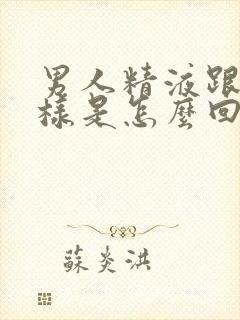 男人精液跟
樣是怎麼回
蘇炎洪